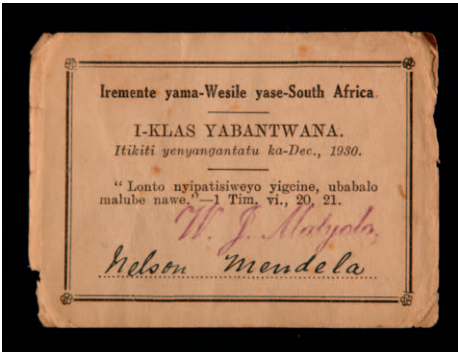 Iremente yama-Wesile yase-South Africa.
I-KLAS YABANTWANA.
Itikiti yenyangantatu ka-Dec., 1930.
“ Lonto nyipatisiweyo yigcine, ubabalo
malube nawe.”—1 Tim. vi., 20, 21.
W. J. Matyolo,
Nelson Mendela